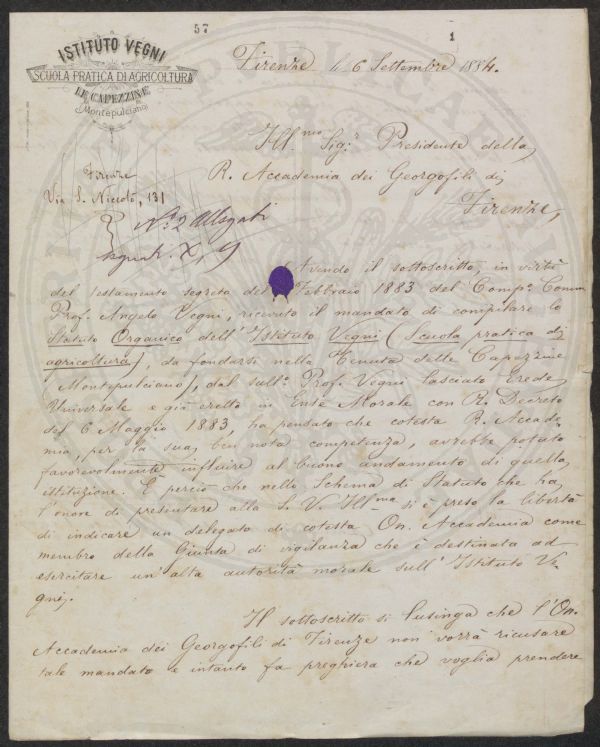 57
1
ISTITUTO VEGNI
SCUOLA PRATICA DI AGRICOLTURA
LE CAPEZZINE
(Montepulciano)
Firenze li 6 Settembre 1884.
Ill.mo Sig.r Presidente della
R. Accademia dei Georgofili di
Firenze,
Firenze
Via S. Niccolò, 131
N.° 2 Allegati
segnati X, Y
Avendo il sottoscritto, in virtù
del testamento segreto del Febbraio 1883 del Comp.o Comm
Prof. Angelo Vegni, ricevuto il mandato di compilare lo
Statuto Organico dell'Istituto Vegni (Scuola pratica di
agricoltura), da fondarsi nella Tenuta delle Capezzine
(Montepulciano), dal sull.o Prof. Vegni lasciato Erede
Universale e già eretto in Ente Morale con R. Decreto
del 6 Maggio 1883, ha pensato che cotesta R. Accade-
mia, per la sua ben nota competenza, avrebbe potuto
favorevolmente influire al buono andamento di quella
istituzione. È perciò che nello Schema di Statuto che ha
l'onore di presentare alla S. V. Ill.ma si è preso la libertà
di indicare un delegato di cotesta On. Accademia come
membro della Giunta di vigilanza che è destinata ad
esercitare un'alta autorità morale sull'Istituto Ve-
gni.
Il sottoscritto si lusinga che l'On.
Accademia dei Georgofili di Firenze non vorrà ricusare
tale mandato e intanto fa preghiera che voglia prendere